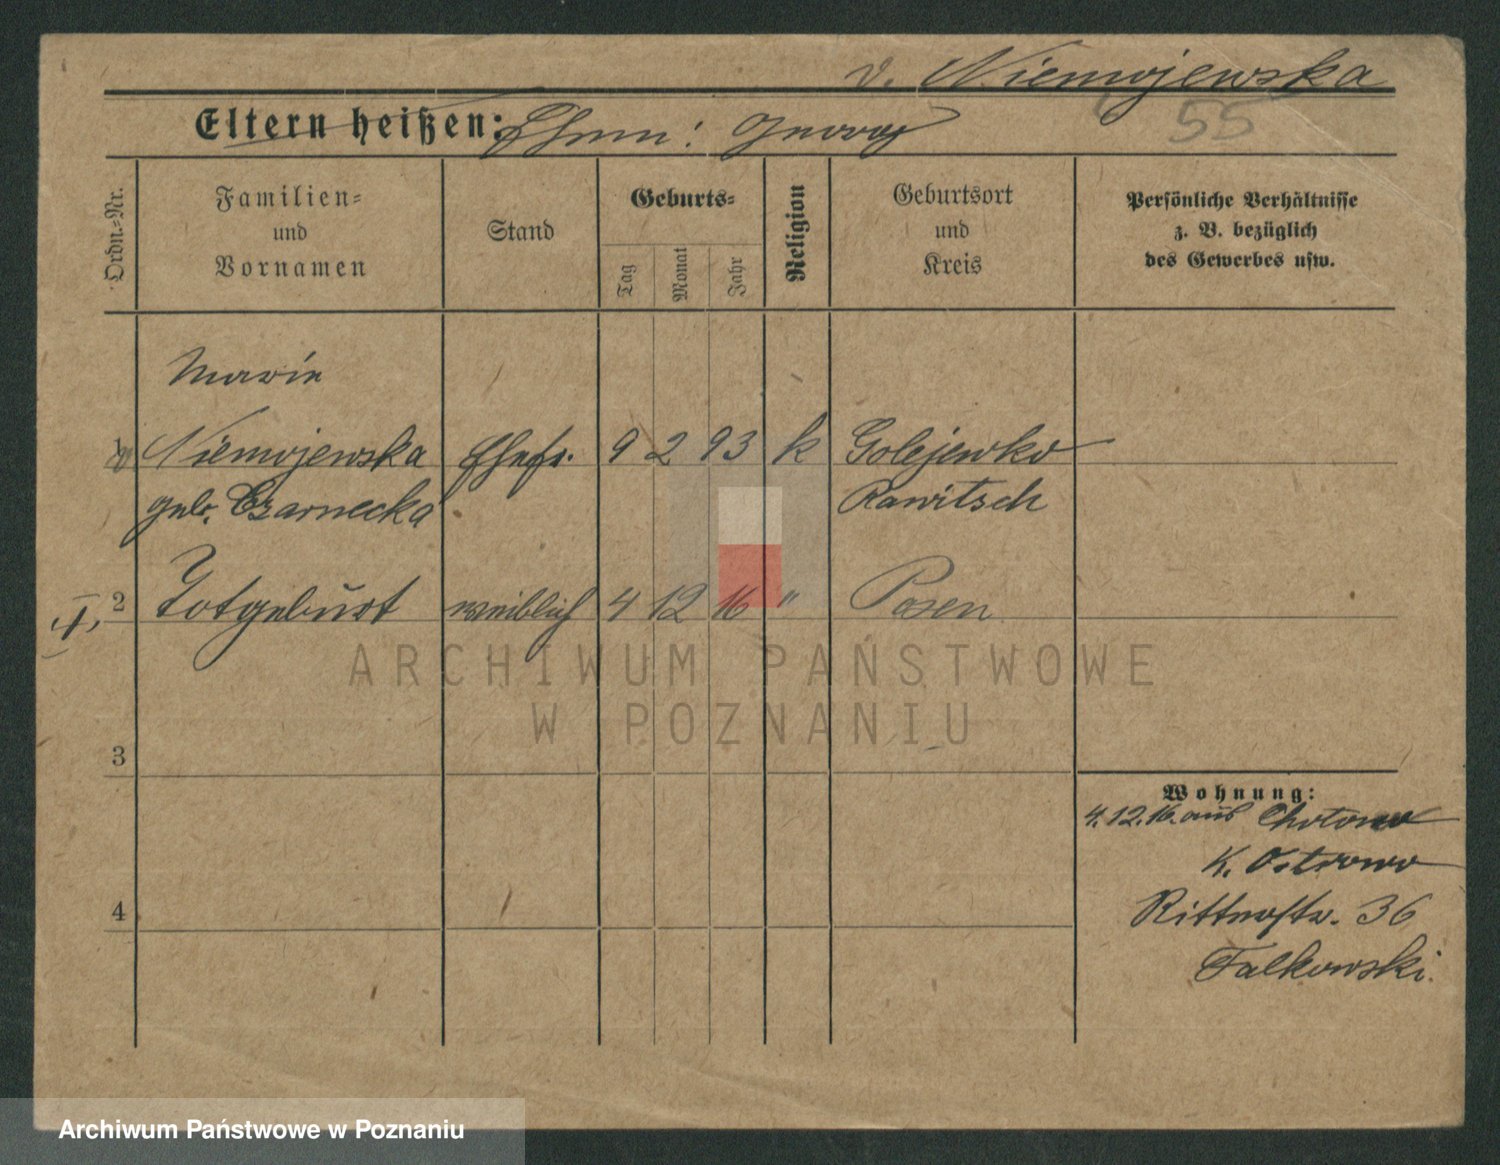 v. Niemojewska
55
Eltern heißen: Ehem: Georg
Ordn.=Nr.
Familien=
und
Vornamen
Stand
Geburts=
Tag
Monat
Jahr
Religion
Geburtsort
und
Kreis
Persönliche Verhältnisse
z. B. bezüglich
des Gewerbes usw.
Marie
1 Niemojewska Ehefr. 9 2 93 k Golejewko
geb. Czarnecka Rawitsch
2 Totgeburt weiblich 4 12 16 " Posen
3
Wohnung:
4.12.16. aus Chotowo
K. Ostrowo
4
Ritterstr. 36
Falkowski.
ARCHIWUM PAŃSTWOWE
W POZNANIU
Archiwum Państwowe w Poznaniu